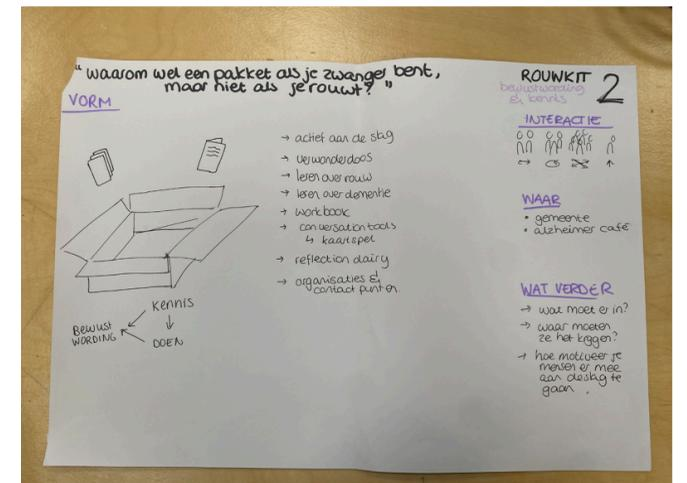 "waarom wel een pakket als je zwanger bent,
maar niet als je rouwt?"
VORM
→ actief aan de slag
→ verwonderdoos
→ leren over rouw
→ leren over dementie
→ workbook
→ conversation tools
↳ kaartspel
→ reflection dairy
→ organisaties &
contact punten.
KENNIS
BEWUST
WORDING
DOEN
ROUWKIT 2
bewustwording
& kennis
INTERACTIE
WAAR
• gemeente
• alzheimer café
WAT VERDER
→ wat moet er in?
→ waar moeten
ze het krijgen?
→ hoe motiveer je
mensen er mee
aan de slag te
gaan.